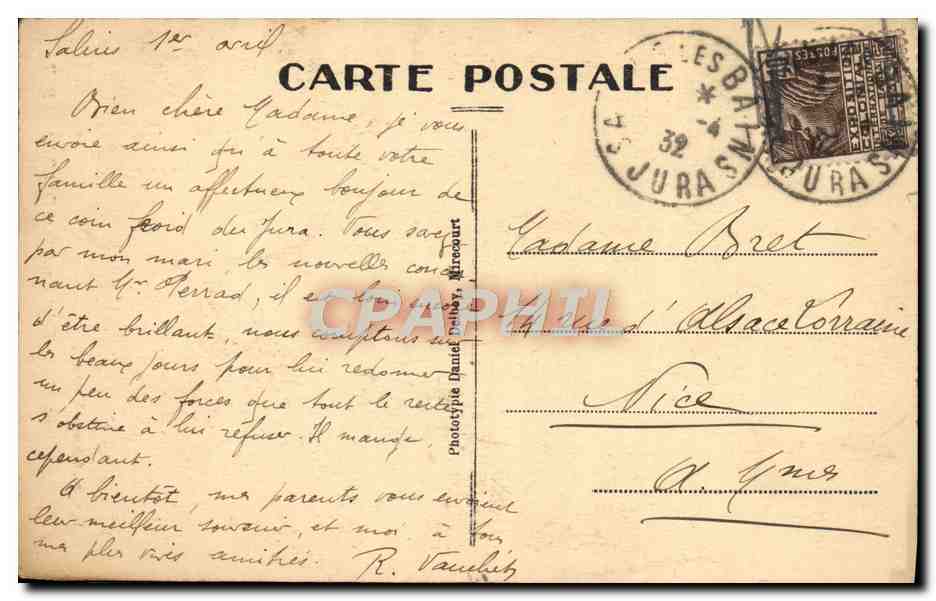 Salins 1er avril
CARTE POSTALE
Bien chère Madame, je vous
envoie ainsi qu'à toute votre
famille un affectueux bonjour de
ce coin froid du Jura. Vous savez
par mon mari, les nouvelles concer
nant Mr Perrad, il est loin encore
d'être brillant, nous comptons sur
les beaux jours pour lui redonner
un peu des forces que tout le reste
s'obstine à lui refuser. Il mange,
cependant.
A bientôt, mes parents vous envoient
leur meilleur souvenir, et moi à tous
mes plus vives amitiés. R. Vauchet
Phototypie Daniel Delboy, Mirecourt
SALINS LES BAINS
* -4
32
JURA
POSTES
JURA
Madame Bret
14 rue d'Alsace Lorraine
Nice
A. Mmes
CPAPHIL